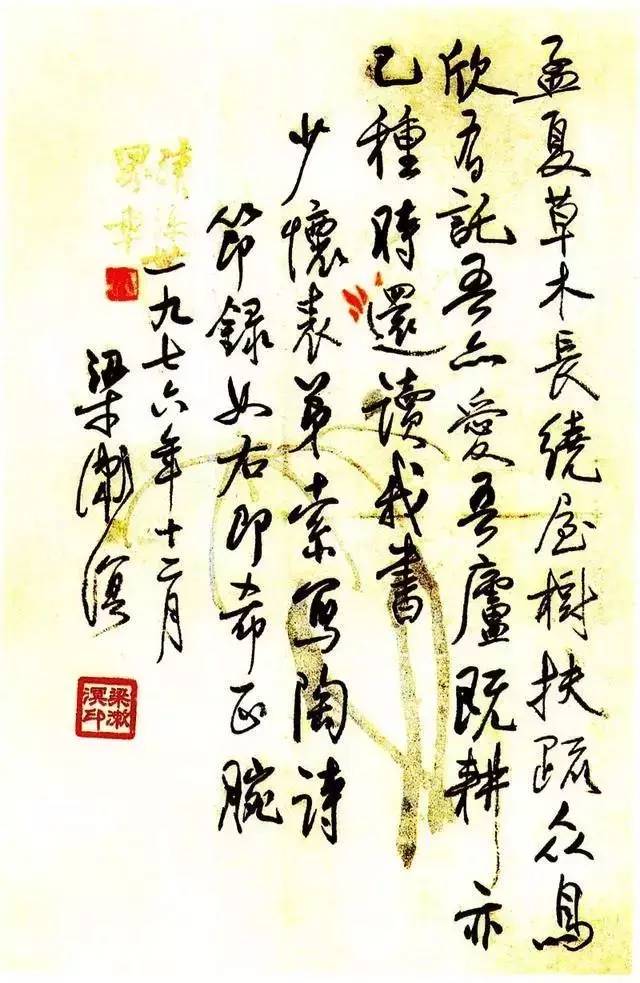 孟夏草木長繞屋樹扶疏众鳥
欣有託吾亦愛吾廬既耕亦
已種時還讀我書
少懷表弟索写陶詩
節録如右即希正腕
一九七六年十二月
梁漱溟
梁漱
溟印